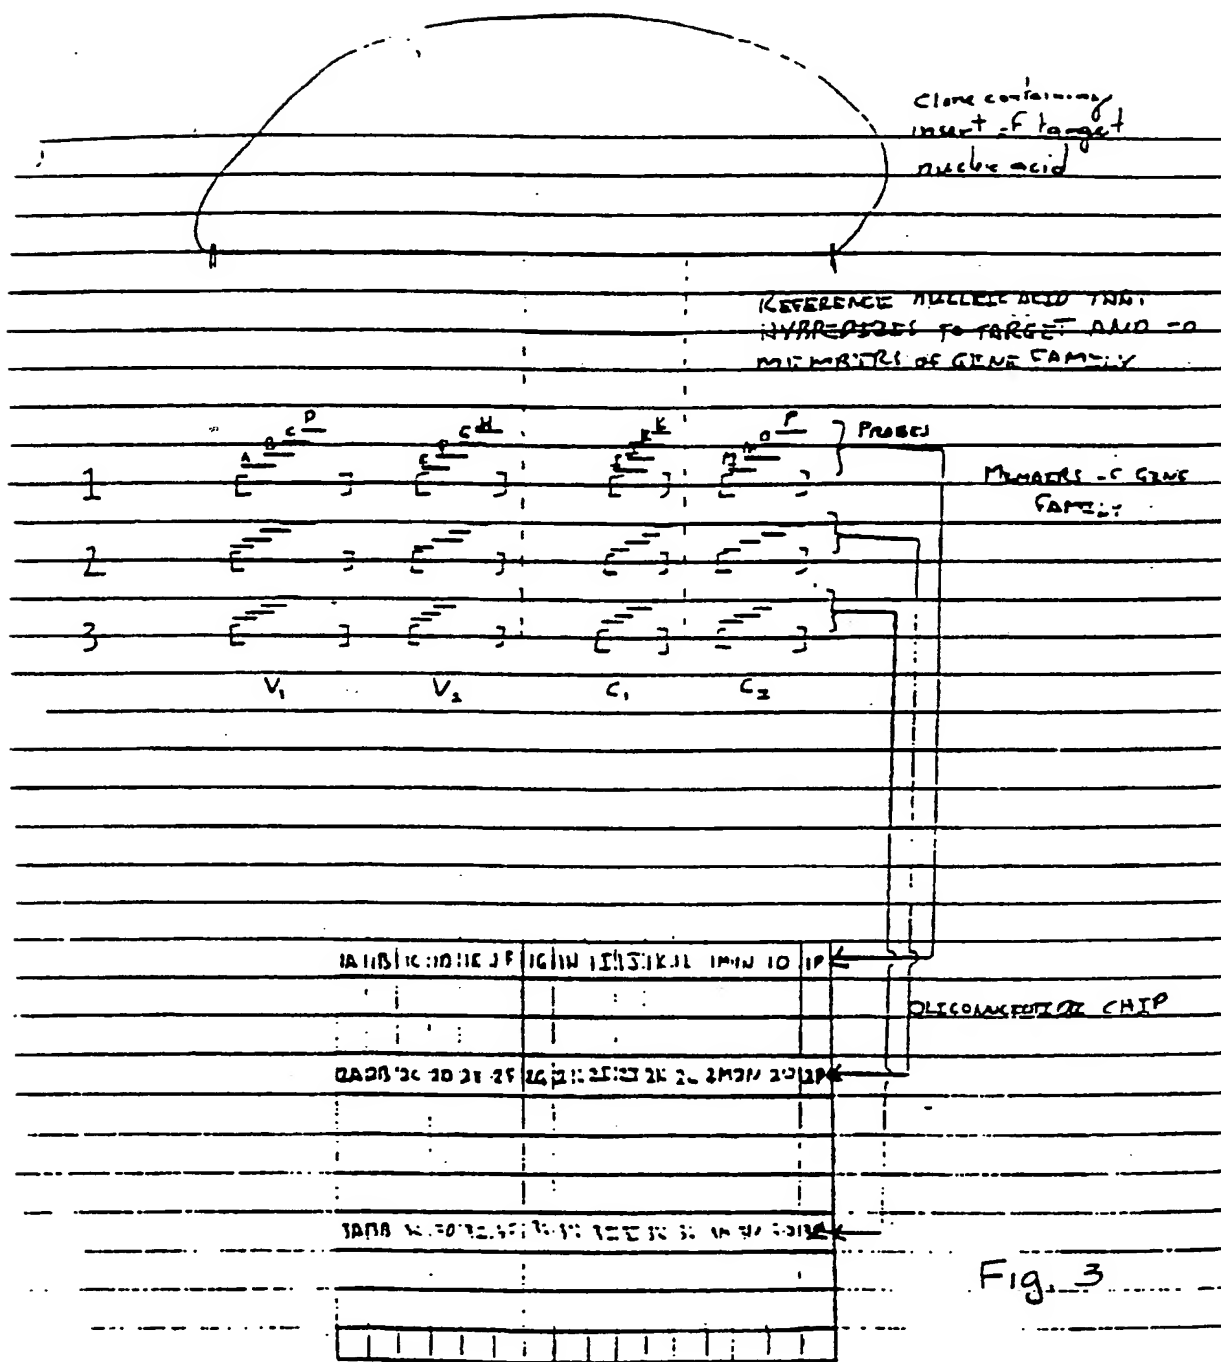 Clone containing
insert of target
nucleic acid
REFERENCE NUCLEIC ACID THAT
HYBRIDIZES TO TARGET AND TO
MEMBERS OF GENE FAMILY
A B C D
E F G H
K
M N O P
PROBES
1
MEMBERS OF GENE
FAMILY
2
3
V₁ V₂ C₁ C₂
1A 1B 1C 1D 1E 1F 1G 1H 1I 1J 1K 1L 1M 1N 1O 1P
OLIGONUCLEOTIDE CHIP
2A 2B 2C 2D 2E 2F 2G 2H 2I 2J 2K 2L 2M 2N 2O 2P
3A 3B
Fig. 3